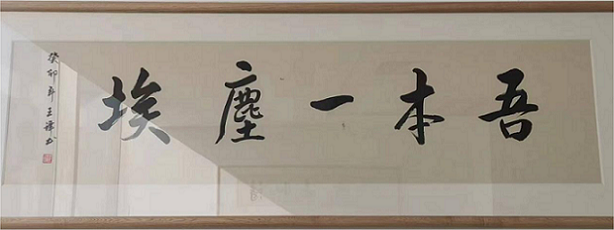 吾本一塵埃
癸卯年王譯书